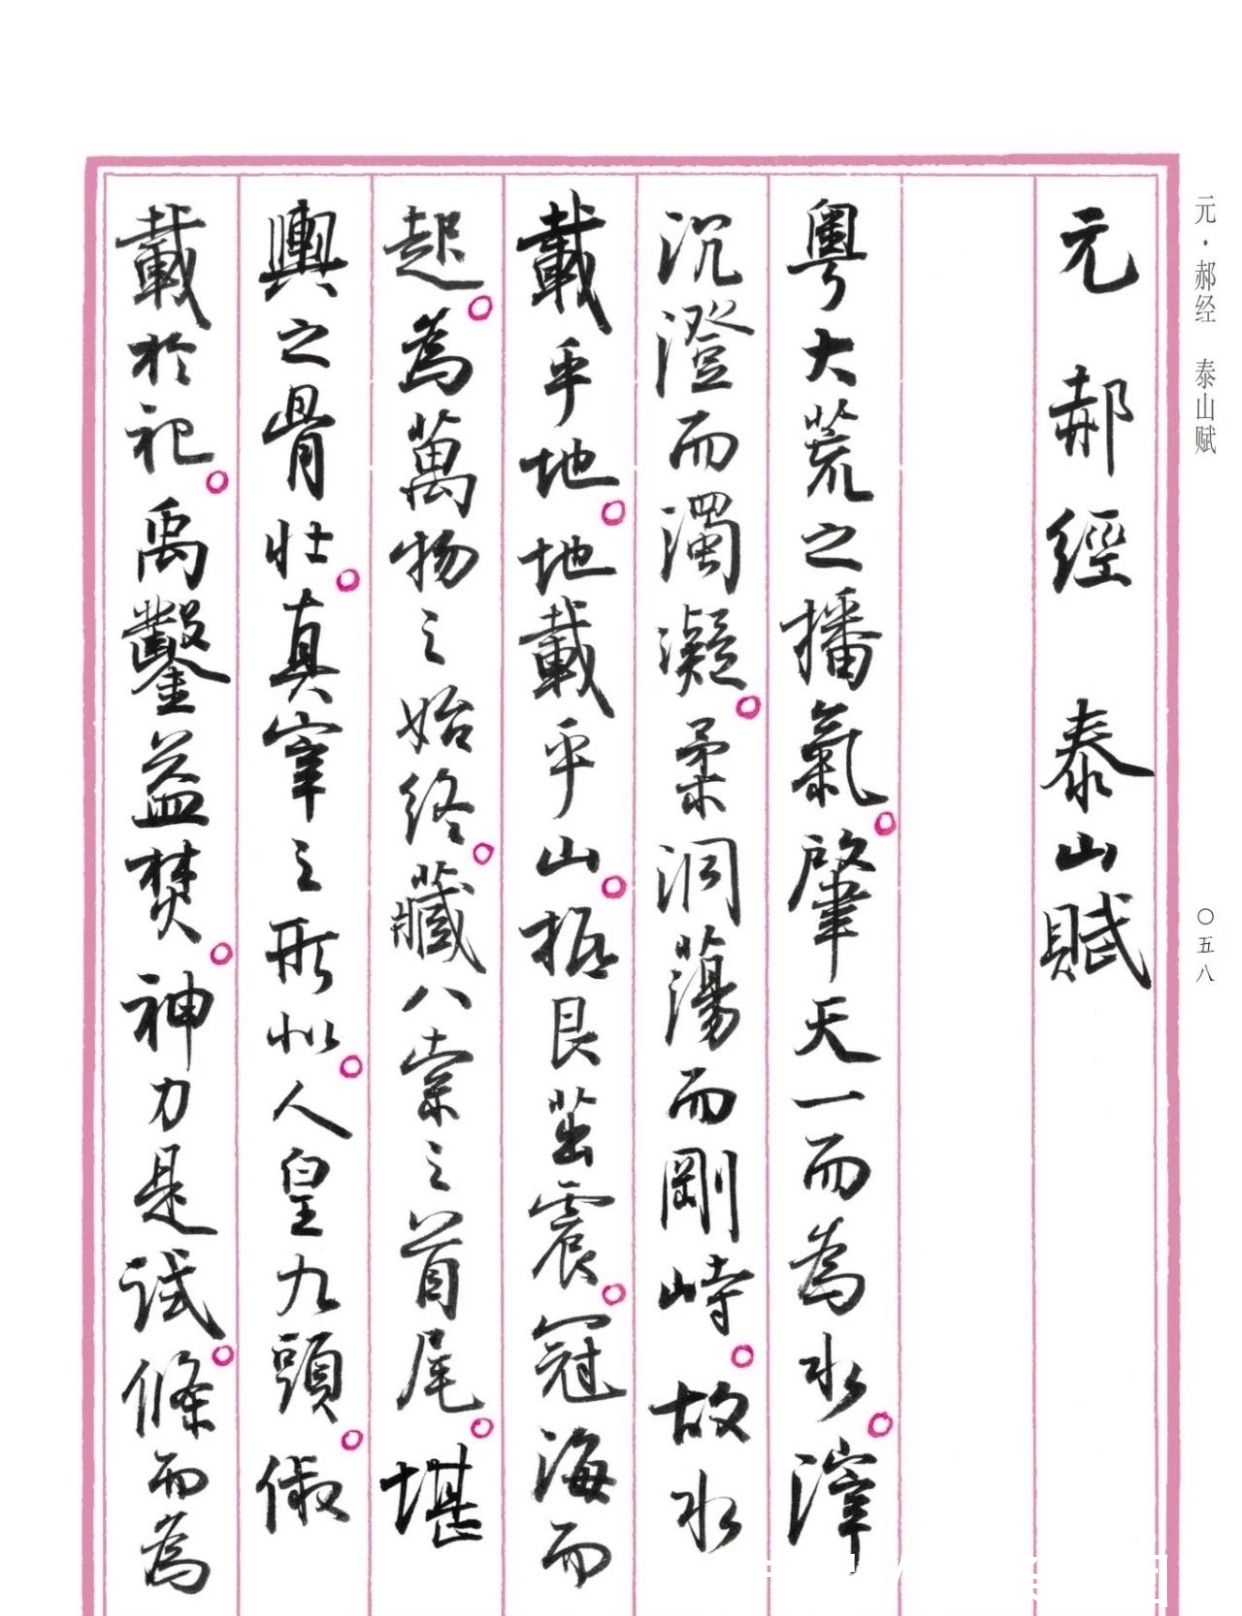 元·郝经　泰山赋
〇五八
元　郝經　泰山賦
粵大荒之播氣。肇天一而為水。滓
沉澄而濁凝。柔洞蕩而剛峙。故水
載乎地。地載乎山。振艮茁震。冠海而
起。為萬物之始終。藏八紊之首尾。堪
輿之骨壯。真宰之形似。人皇九頭。俶
載於祀。禹鑿益焚。神力是試。條而為